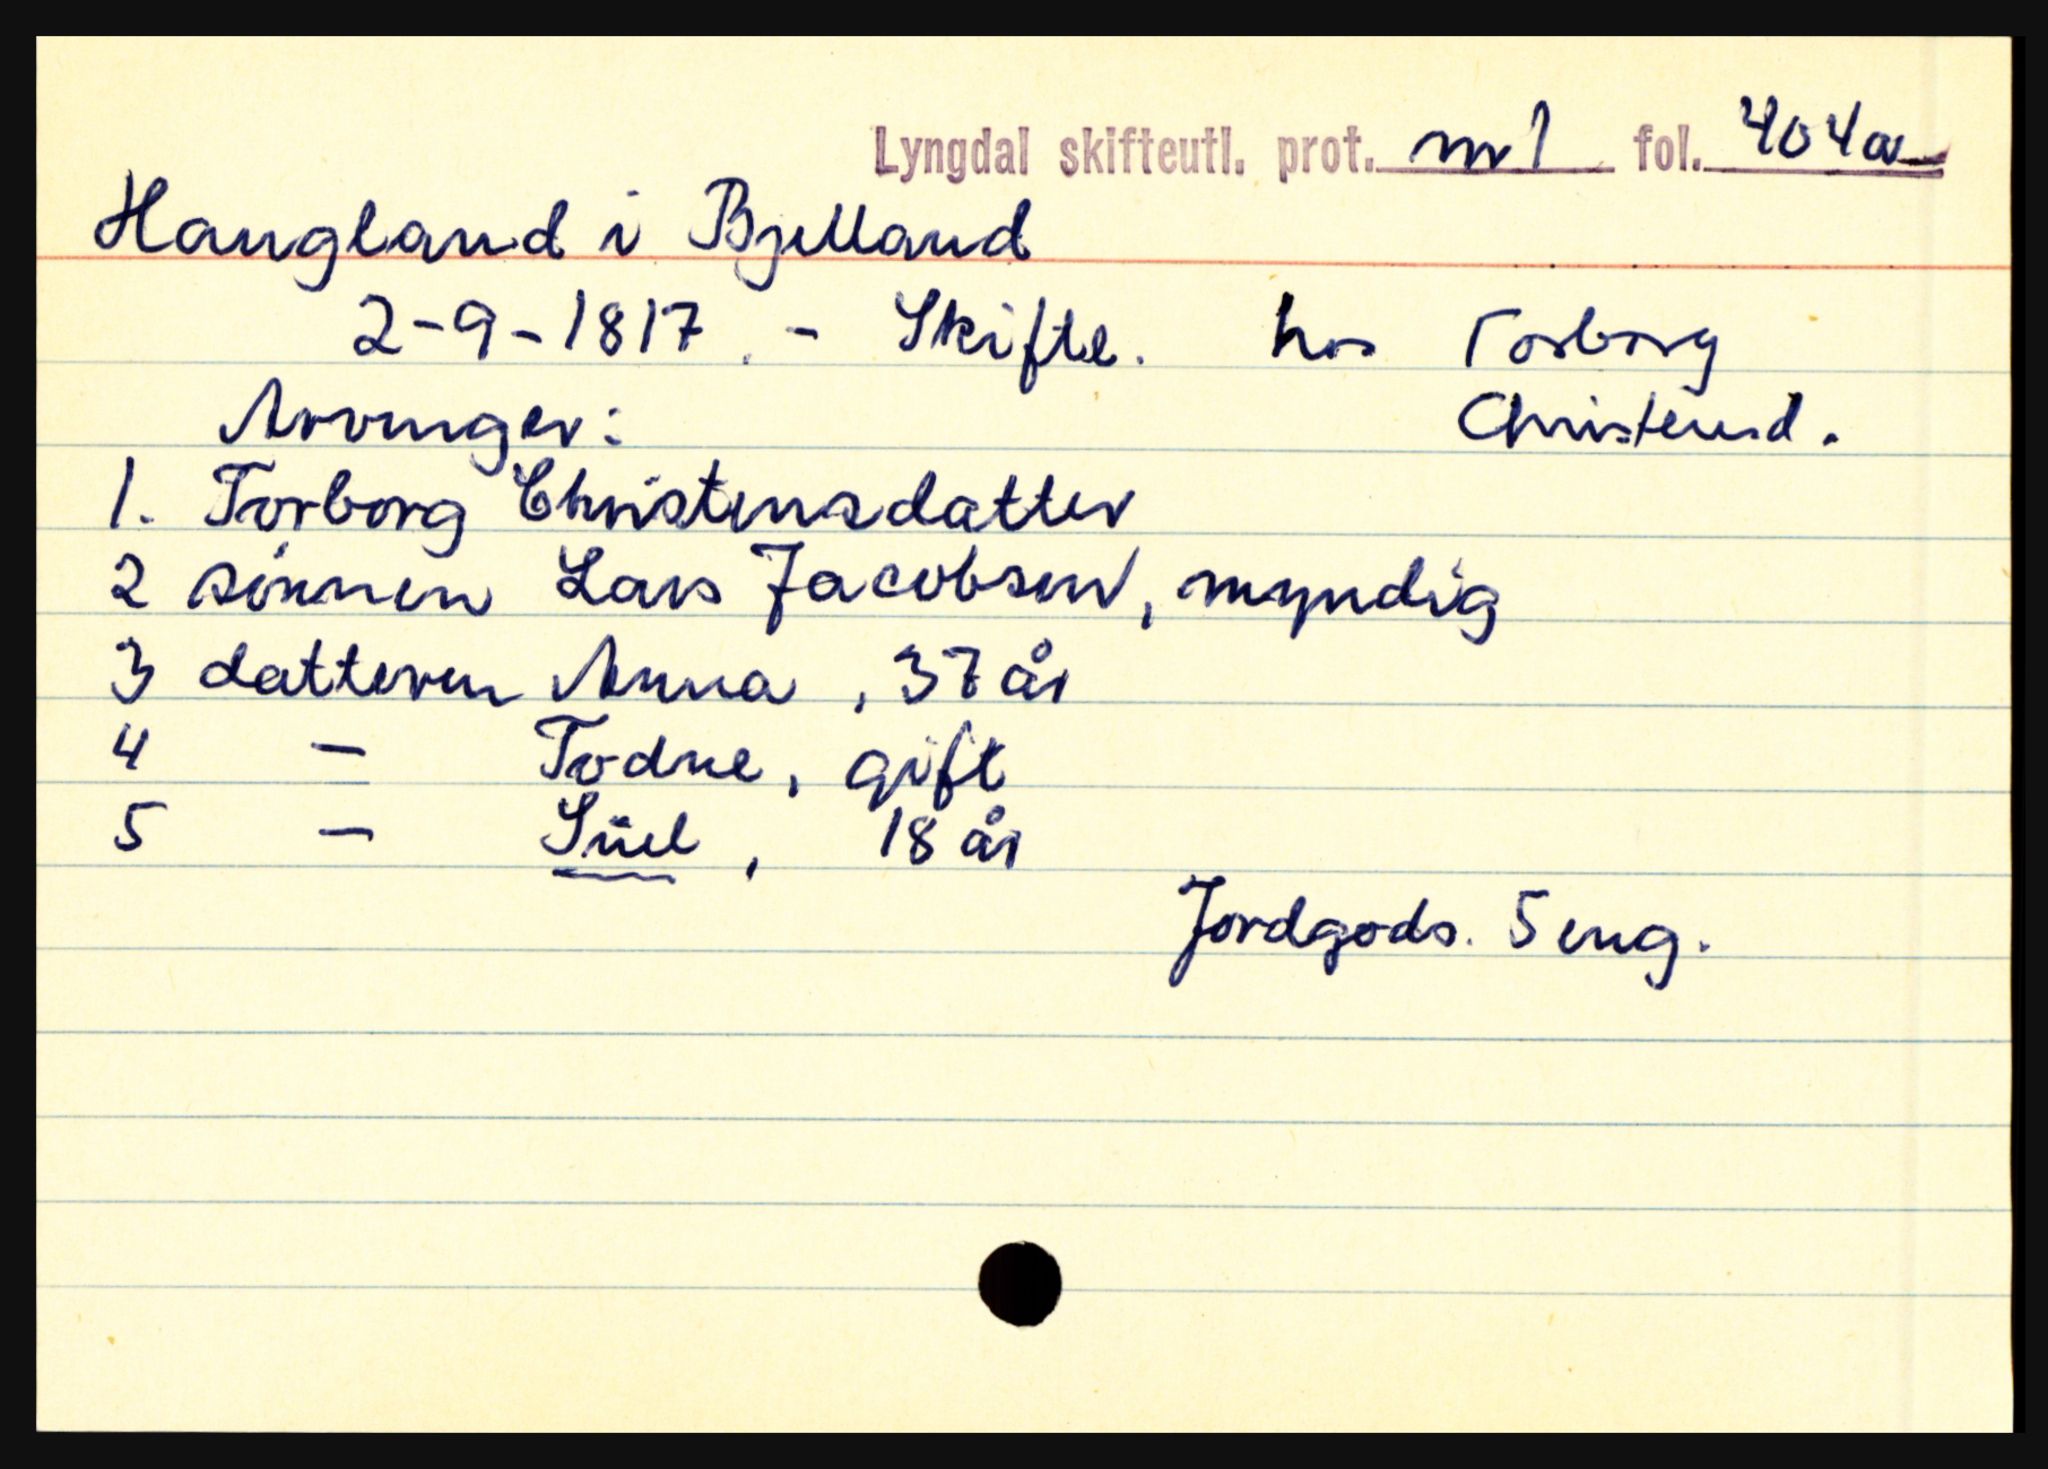 Lyngdal skifteutl. prot. nr 1 fol. 404a
Haugland i Bjelland
2-9-1817. - Skifte. hos Torborg
Christensd.
Arvinger:
1. Torborg Christensdatter
2 sønnen Lars Jacobsen, myndig
3 datteren Anna, 37 år
4 — Todne, gift
5 — Siiel, 18 år
Jordgods. 5 eng.